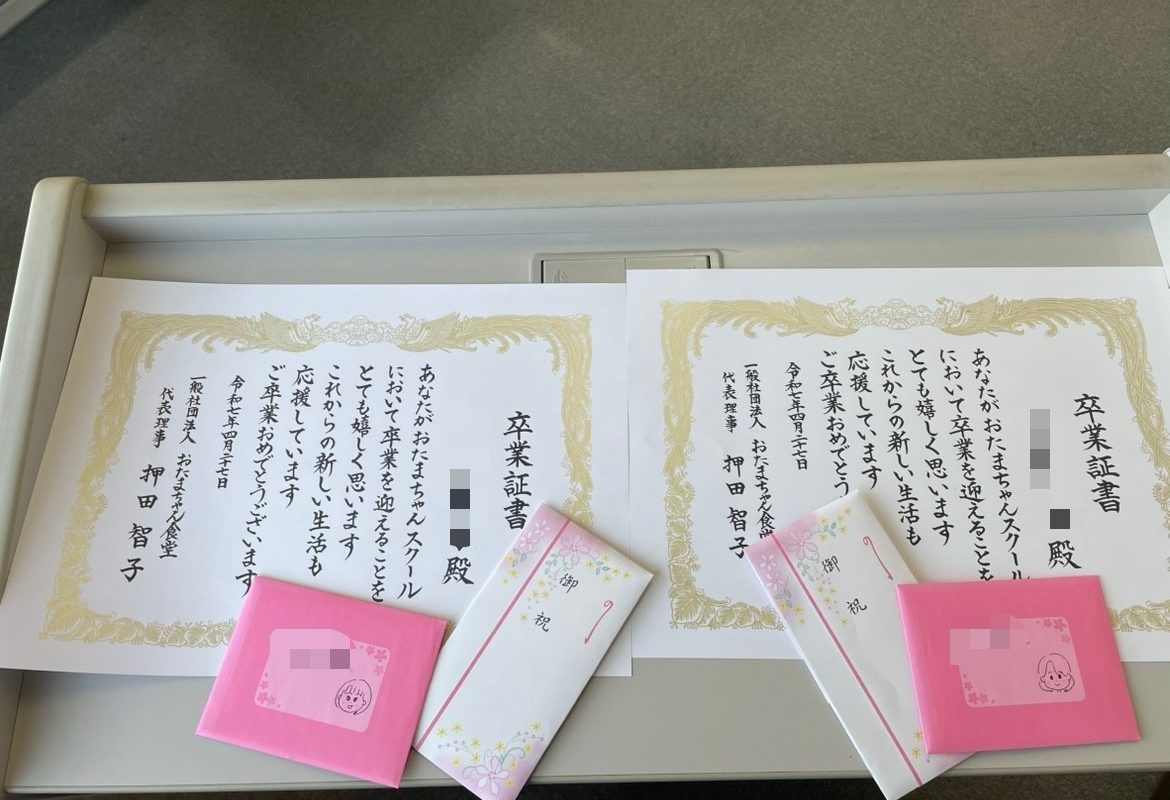 卒業証書
殿
あなたがおたまちゃんスクール
において卒業を迎えることを
とても嬉しく思います
これからの新しい生活も
応援しています
ご卒業おめでとうございます
令和七年四月二十七日
一般社団法人 おたまちゃん食堂
代表理事 押田智子
御祝
卒業証書
殿
あなたがおたまちゃんスクール
において卒業を迎えることを
とても嬉しく思います
これからの新しい生活も
応援しています
ご卒業おめでとう
令和七年四月二十七日
一般社団法人 おたまちゃん食堂
代表理事 押田智子
御祝